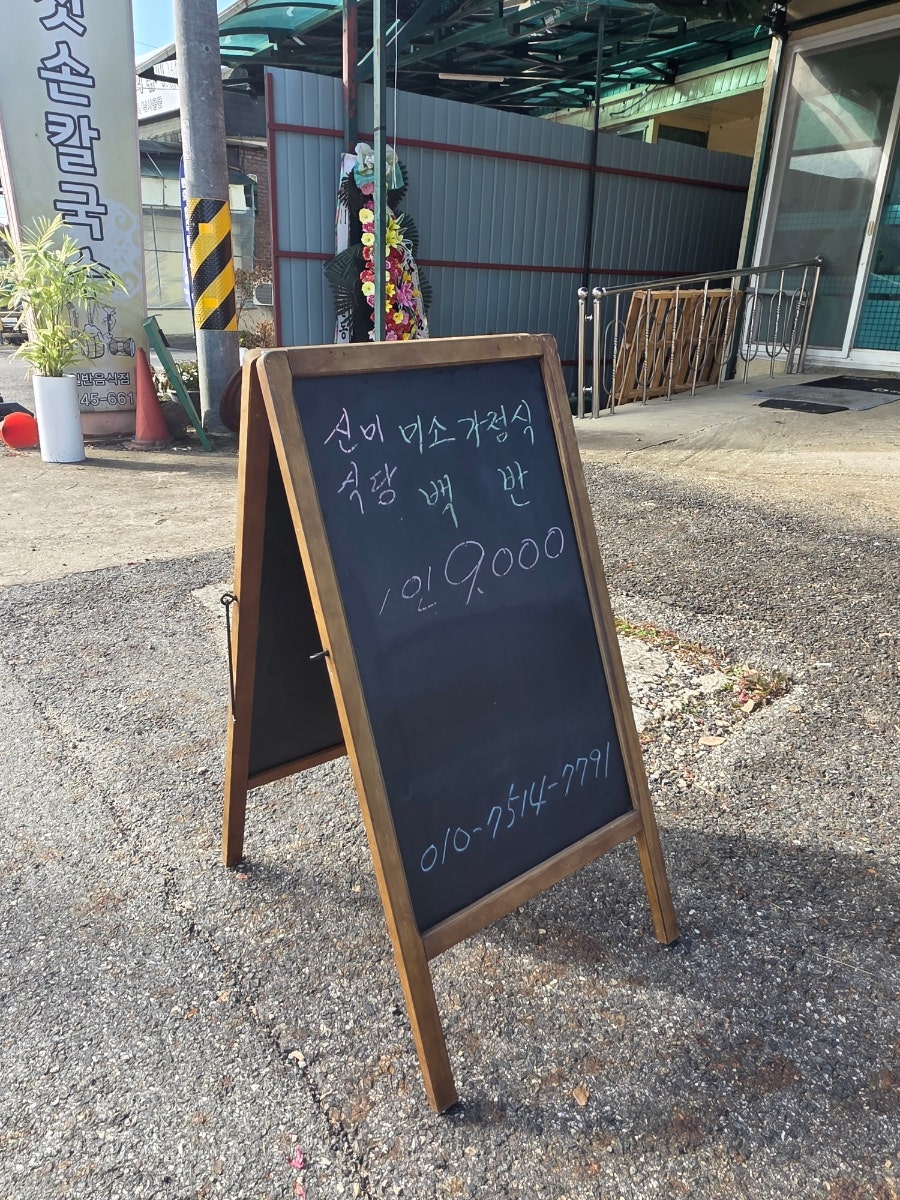 손칼국수
일반음식점
45-661
선미 미소 가정식
식당 백 반
1인 9,000
010-7514-7791